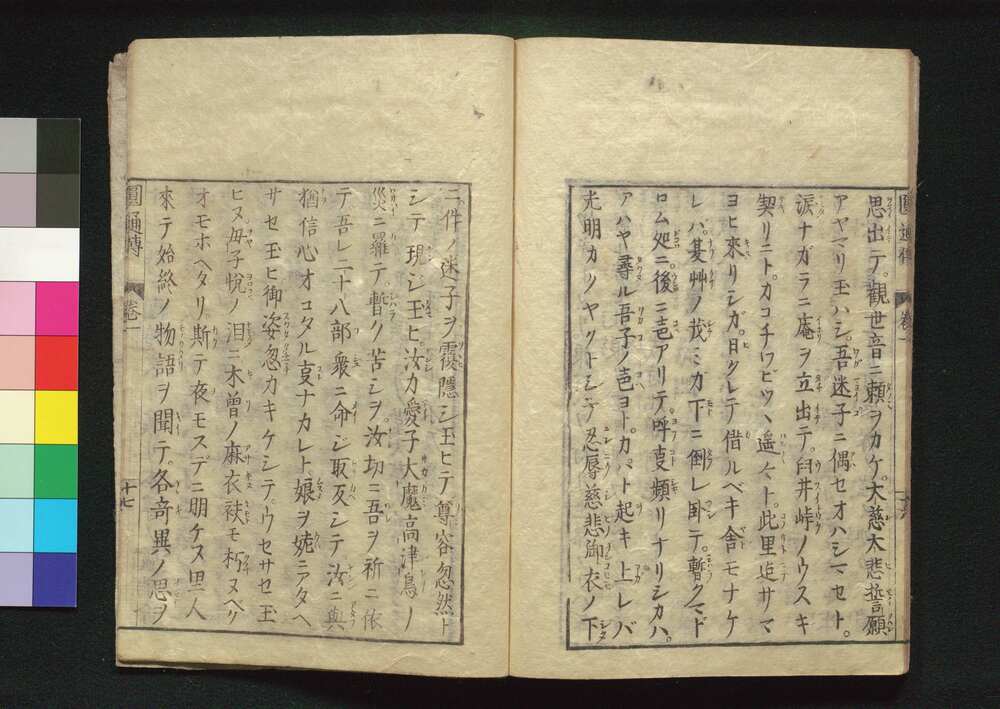 圓通傳 卷一
思出テ。觀世音ニ頼ヲカケ。大慈大悲誓願
アヤマリ玉ハシ。吾迷子ニ偶セオハシマセト。
涙ナガラニ庵ヲ立出テ。臼井峠ノウスキ
契リニト。カコチワビツヽ遥々ト。此里迠サマ
ヨヒ來リシガ。日クレテ借ルベキ舎モナケ
レバ。夏艸ノ茂ミカ下ニ倒レ困テ。暫クマド
ロム処ニ後ニ壱アリテ呼叓頻リナリシカハ。
アハヤ尋ル吾子ノ壱ヨト。カバト起キ上レバ
光明カクヤクトシテ忍辱慈悲御衣ノ下
ニ件ノ迷子ヲ覆隠シ玉ヒテ尊容忽然ト
シテ現シ玉ヒ。汝カ愛子大魔高津鳥ノ
災ニ羅テ。暫ク苦シヲ汝切ニ吾ヲ祈ニ依
テ吾レ二十八部衆ニ命シ取反シテ汝ニ與
猶信心オコタル叓ナカレト娘ヲ姥ニアタヘ
サセ玉ヒ御姿忽カキケシテ。ウセサセ玉
ヒヌ母子悦ノ泪ニ木曽ノ麻衣袂モ朽ヌヘク
オモホヘタリ斯テ夜モスデニ明ケス里人
來テ始終ノ物語ヲ聞テ。各竒異ノ思ヲ
圓通傳 卷一 十七